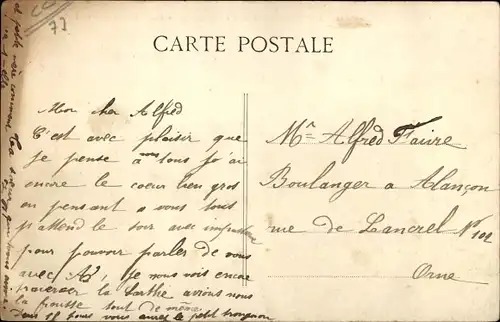 CC
77
CARTE POSTALE
Mon cher Alfred
C'est avec plaisir que
je pense a vous tous j'ai
encore le coeur bien gros
en pensant a vous tous
j'attend le soir avec impatience
pour pouvoir parler de vous
avec je nous vois encore
traverser la Sarthe avions nous
la frousse tout de même
dans tous vous avec le petit trognon
et petite
Mr Alfred Faivre
Boulanger a Alançon
rue de Lancrel No 102
Orne